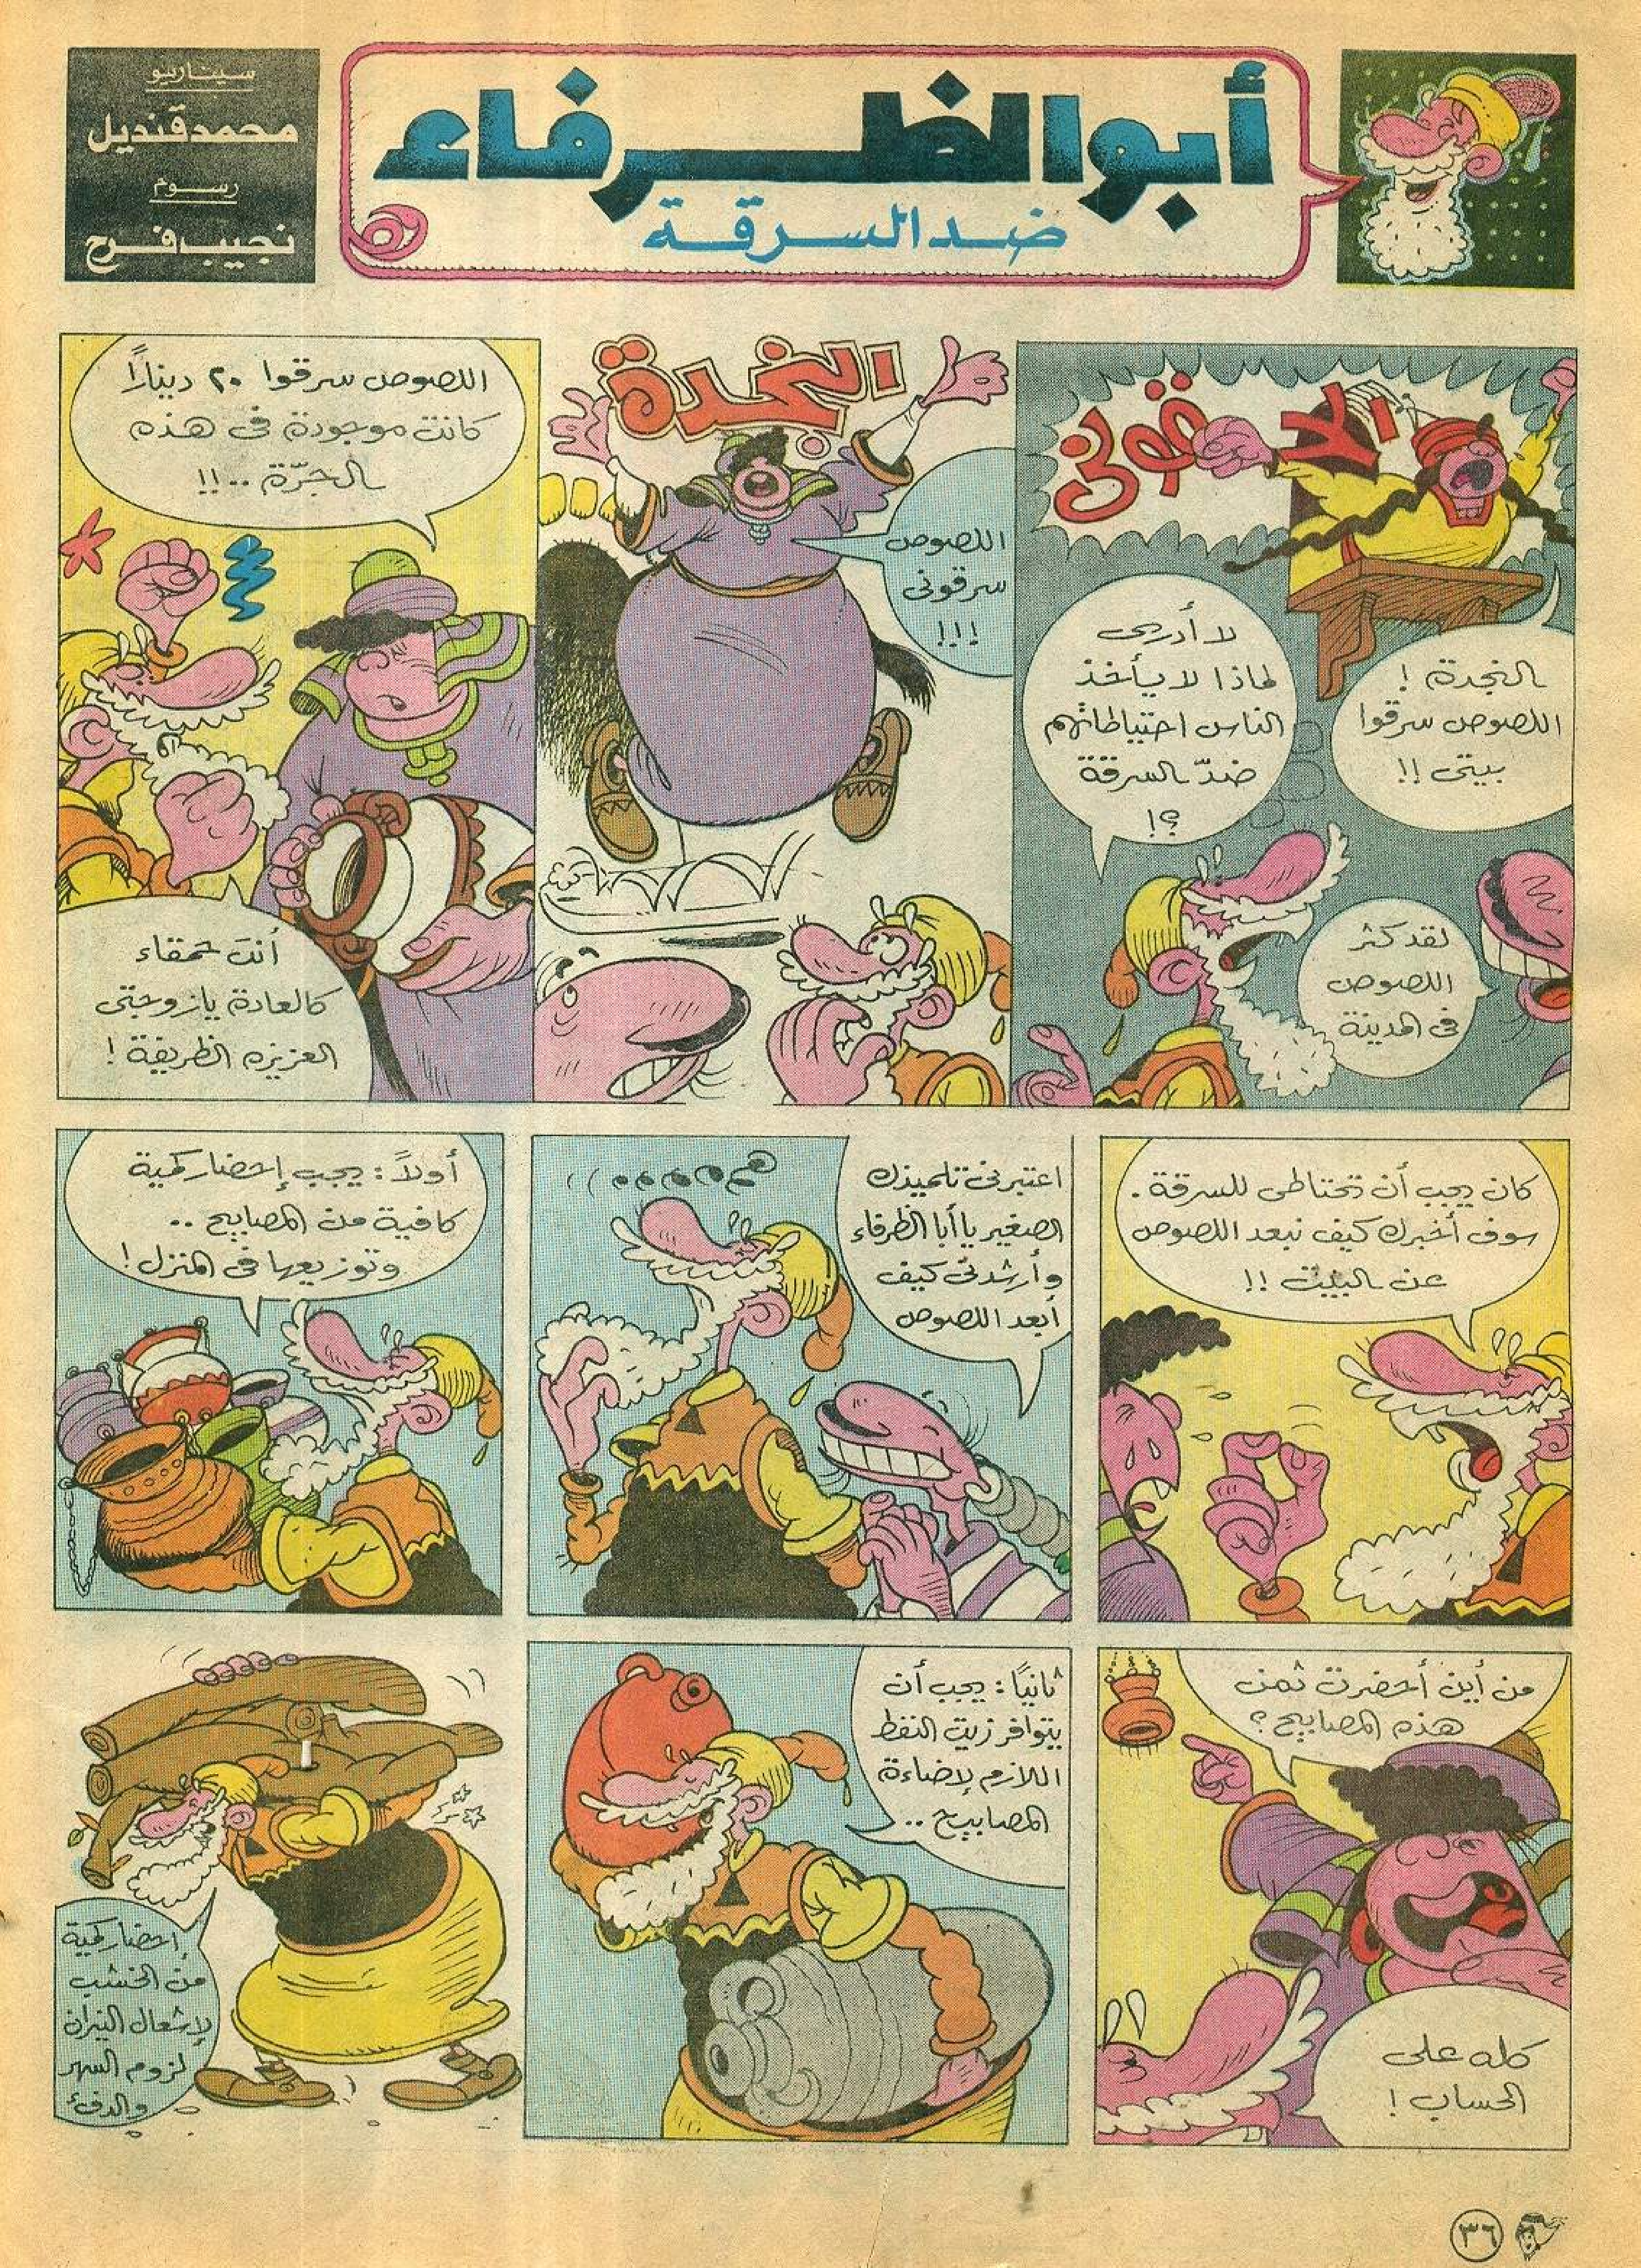 أبو الظرفاء
ضد السرقة
سيناريو
محمد قنديل
رسوم
نجيب فرح
الحقوني
النجدة !
اللصوص سرقوا
بيتي !!
لا أدري
لماذا لا يأخذ
الناس احتياطاتهم
ضدّ السرقة
؟!
لقد كثر
اللصوص
في المدينة
النجدة
اللصوص
سرقوني
!!!
اللصوص سرقوا ٢٠ دينارًا
كانت موجودة في هذه
الجرّة ..!!
أنتَ حمقاء
كالعادة يا زوجتي
العزيزه الظريفة !
كان يجب أن تحتاطي للسرقة .
سوف أخبرك كيف نبعد اللصوص
عن البيت !!
اعتبرني تلميذك
الصغير يا أبا الظرفاء
وأرشدني كيف
أبعد اللصوص
أولاً : يجب إحضار كمية
كافية من المصابيح ..
وتوزيعها في المنزل !
من أين أحضرت ثمن
هذه المصابيح ؟
كله على
الحساب !
ثانيًا : يجب أن
يتوافر زيت النفط
اللازم لإضاءة
المصابيح ..
إحضار كمية
من الخشب
لإشعال النيران
لزوم السهر
والدفئ
٣٦